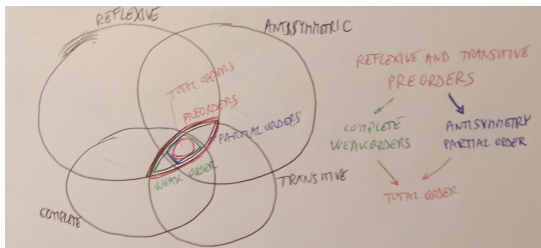 REFLEXIVE
ANTISYMMETRIC
TOTAL ORDERS
PREORDERS
PARTIAL ORDERS
WEAK ORDER
TRANSITIVE
COMPLETE
REFLEXIVE AND TRANSITIVE
PREORDERS
COMPLETE
WEAK ORDERS
ANTISYMMETRY
PARTIAL ORDER
TOTAL ORDER